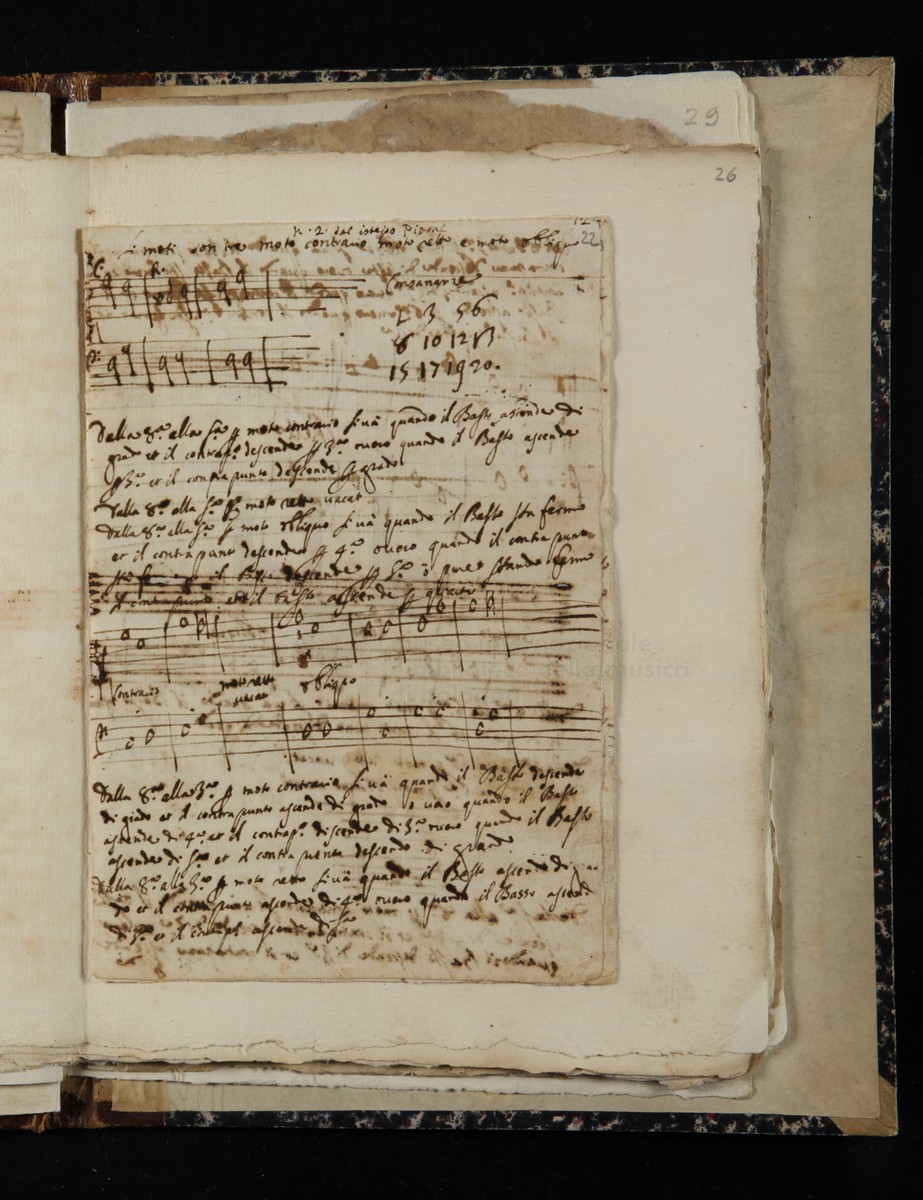 29
26
n. 2. del istesso
22
Li moti son tre moto contrario moto retto e moto obbliquo
Consonanze
1 3 5 6
8 10 12 13
15 17 19 20.
Dalla 8.a alla 5.a p moto contrario si và quando il Basto ascende di
grado et il contrap.o descende p 3.a overo quando il Basto ascende
p 3.a et il contrapunto descende p grado
Dalla 8.a alla 5.a p moto retto vacat
Dalla 8.a alla 5.a p moto obliquo si và quando il Basto sta fermo
et il contrapunto descende p 4.a overo quando il contrapunto
il descende p 5.a ò pure stando fermo
il contrapunto et il Basto ascende p
Contrario
moto retto
vacat
obliquo
Dalla 8.a alla 3.a p moto contrario si và quando il Basto descende
di grado et il contrapunto ascende di grado o vero quando il Basto
ascende di 4.a et il contrap.o discende di 3.a overo quando il Basto
ascende di 5.a et il contrapunto descende di grado
Dalla 8.a alla 3.a p moto retto si và quando il Basto ascende di
do et il contrapunto ascende di 4.a overo quando il Basso ascend
di 3.a et il contrap. ascende